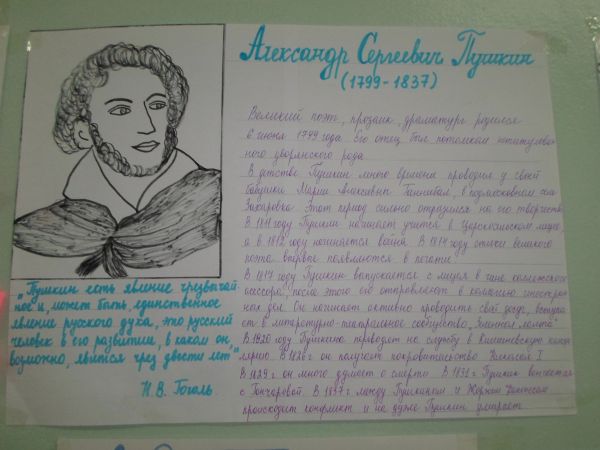 Александр Сергеевич Пушкин
(1799-1837)
Великий поэт, прозаик, драматург родился
6 июня 1799 года. Его отец был потомком нетитулован
ного дворянского рода.
В детстве Пушкин много времени проводил у своей
бабушки Марии Алексеевны Ганнибал, в подмосковном селе
Захарово. Этот период сильно отразился на его творчестве.
В 1811 году Пушкин начинает учится в Царскосельском лицее,
а в 1812 году начинается война. В 1814 году стихи великого
поэта впервые появляются в печати.
В 1817 году Пушкин выпускается с лицея в чине коллежского
после этого его отправляют в коллегию иностран
ных дел. Он начинает активно проводить свой досуг, вступа
ет в литературно-театральное сообщество "Зеленая лампа".
В 1820 году Пушкина переводят на службу в Кишиневскую канце
лярию. В 1826 г он получает покровительство Николая I
В 1829 г. он много думает о смерти. В 1831 г Пушкин венчается
с Гончаровой. В 1837 г между Пушкиным и Жоржем Дантесом
происходит конфликт и на дуэли Пушкин умирает
"Пушкин есть явление чрезвычай
ное и, может быть, единственное
явление русского духа, это русский
человек в его развитии, в каком он,
возможно, явится чрез двести лет"
Н.В. Гоголь